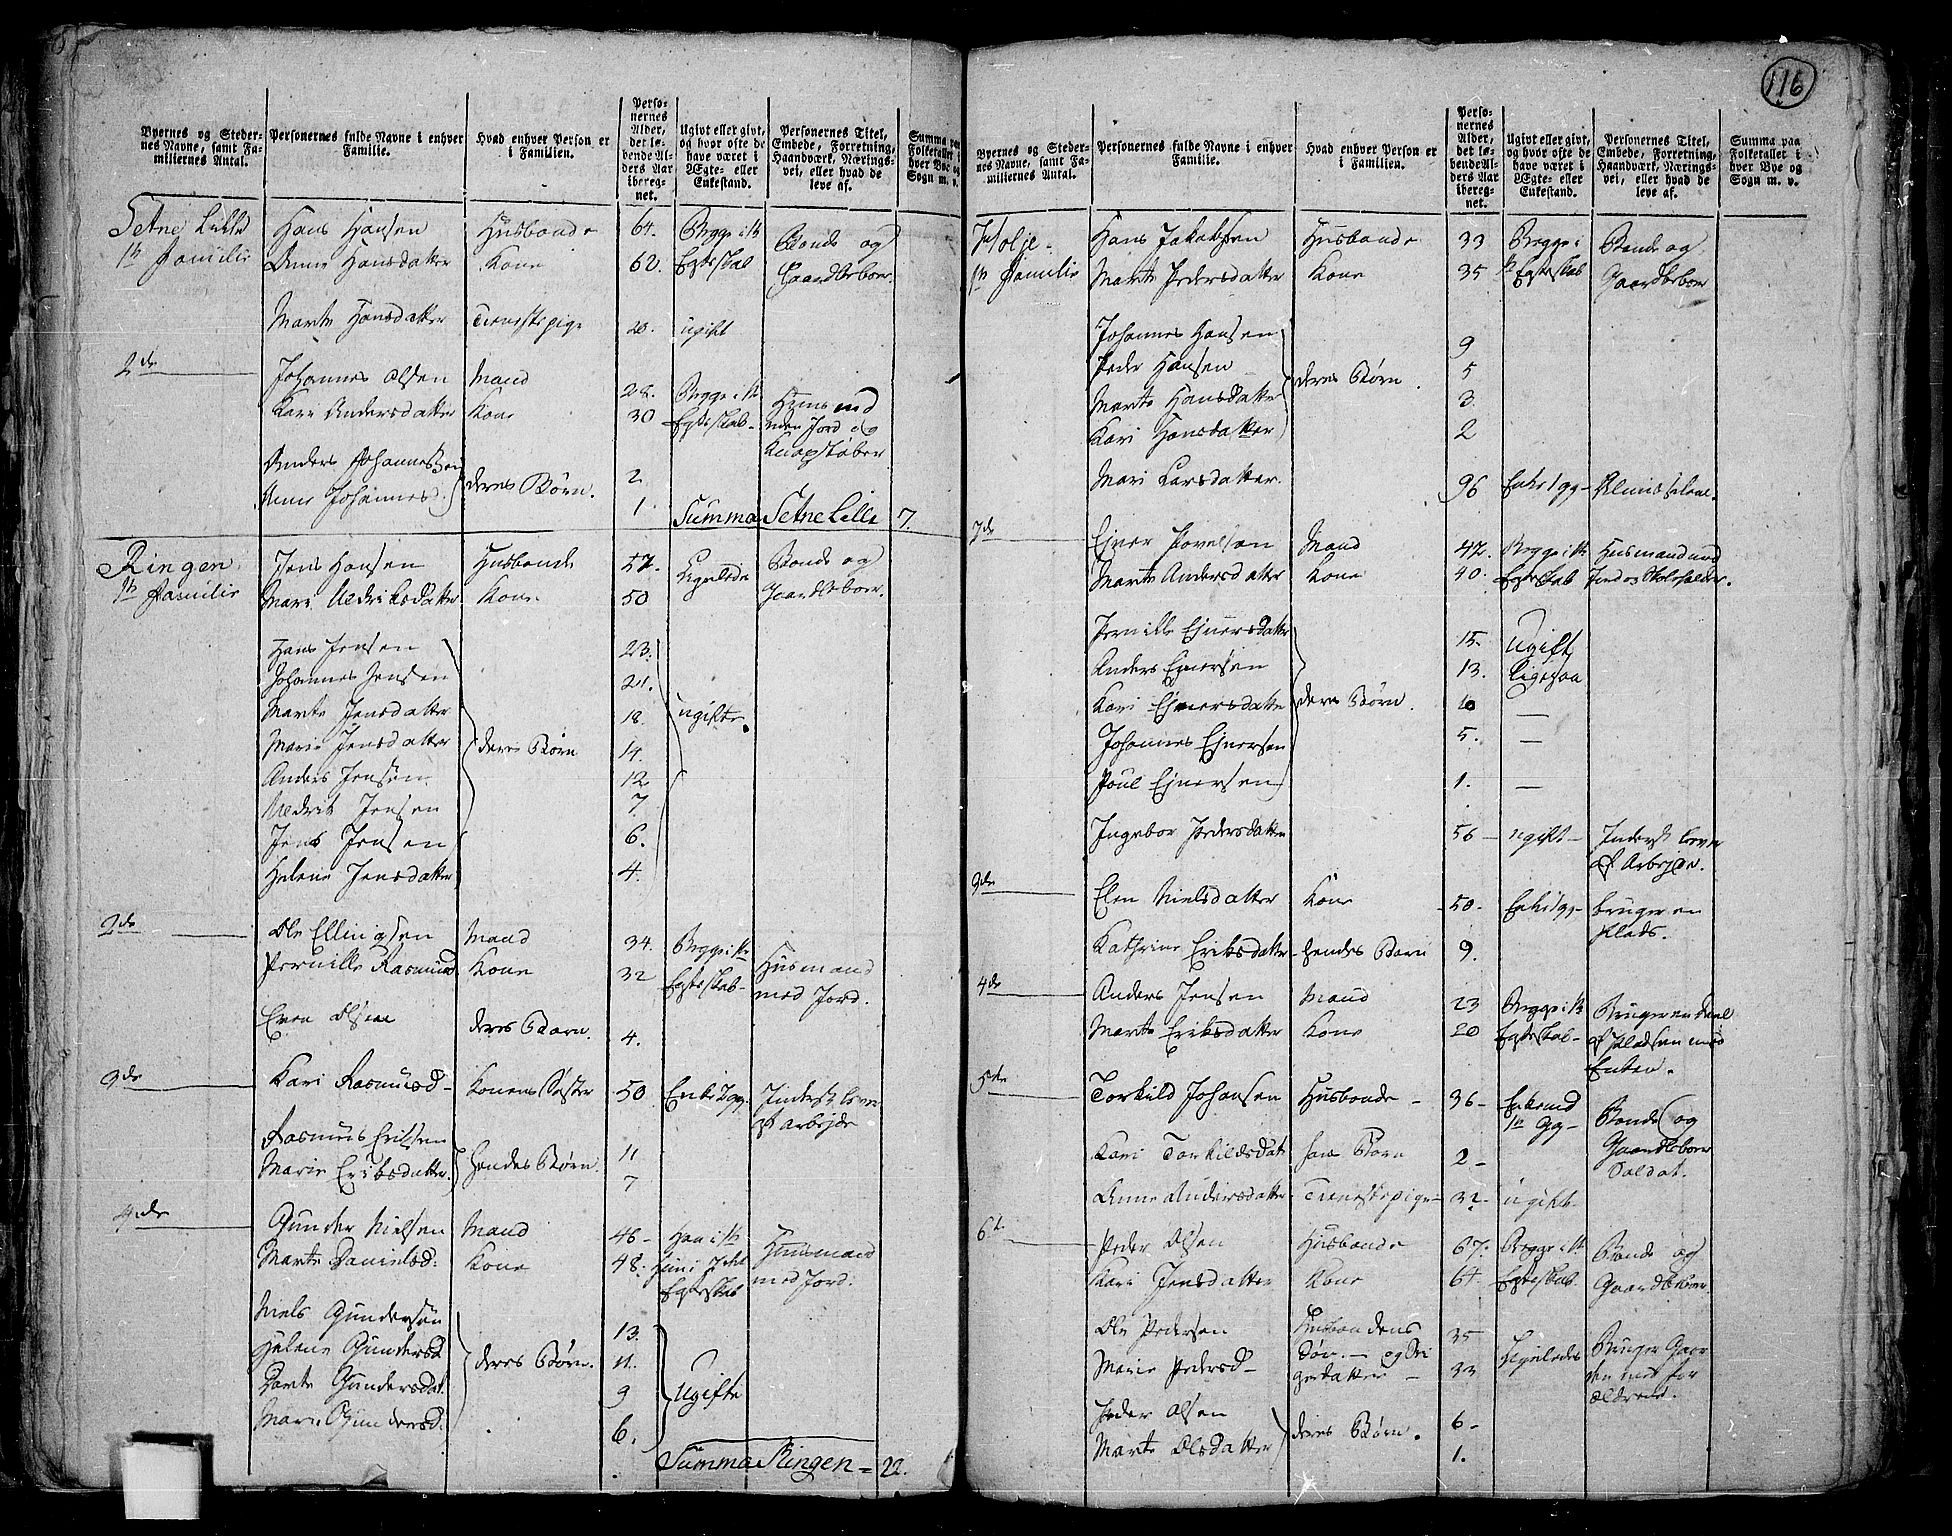 116
Byernes og Steder-
nes Navne, samt Fa-
miliernes Antal.
Personernes fulde Navne i enhver
Familie.
Hvad enhver Person er
i Familien.
Perso-
nernes
Alder,
det lø-
bende Al-
ders Aar
iberegnet.
Ugivt eller givt,
og hvor ofte de
have været i
Ægte- eller
Enkestand.
Personernes Titel,
Embede, Forretning,
Haandværk, Nærings-
vei, eller hvad de
leve af.
Summa paa
Folketallet i
hver Bye og
Sogn m. v.
Setne Lille
1te Familie
Hans Hansen Husbonde 64. Begge i 1te Bonde og
Anne Hansdatter Kone 62. Egteskab Gaardbeboer.
Marte Hansdatter Tienestepige 20. ugift
2de Johannes Olsen Mand 28. Begge i 1te Huusmd
Kari Andersdatter Kone 30 Egteskab- uden Jord og
Knapstøber
Anders Johannessen 2.
Anne Johannesd. deres Børn. 1. Summa Setne Lille 7.
Ringen
1te Familie
Jens Hansen Husbonde 57. Ligeledes Bonde og
Mari Uldriksdatter Kone 50 Gaardbeboer.
Hans Jensen 23.
Johannes Jensen 21.
Marte Jensdatter 18. ugifte.
Marie Jensdatter deres Børn 14.
Anders Jensen 12
Uldrik Jensen 7.
Jens Jensen 6.
Helene Jensdatter 4.
2de Ole Ellingsen Mand 34. Begge i 1te Husmand
Pernille Rasmusd Kone 32 Egteskab- med Jord.
Even Olsen deres Barn. 4.
3de Kari Rasmusd- Konens Søster 50 Enke 1 gg. Inderst lever
af Arbejde
Rasmus Eriksen 11
Marie Eriksdatter hendes Børn. 7
4de Gunder Nielsen Mand 46- Han i 1te Huusmand
Marte Danielsd. Kone 48. med Jord.
Egteskab
Niels Gundersen 13.
Helene Gundersd 11.
Dorte Gundersdat. deres Børn. 9 Ugifte
Mari Gundersd. 6.
Summa Ringen = 22.
Byernes og Steder-
nes Navne, samt Fa-
miliernes Antal.
Personernes fulde Navne i enhver
Familie.
Hvad enhver Person er
i Familien.
Perso-
nernes
Alder,
det lø-
bende Al-
ders Aar
iberegnet.
Ugivt eller givt,
og hvor ofte de
have været i
Ægte- eller
Enkestand.
Personernes Titel,
Embede, Forretning,
Haandværk, Nærings-
vei, eller hvad de
leve af.
Summa paa
Folketallet i
hver Bye og
Sogn m. v.
1te Familie
Hans Jakobsen Husbonde 33 Begge i Bonde og
Marte Pedersdatter Kone 35 1te Egteskab Gaardbeboer
Johannes Hansen 9
Peder Hansen 5
Marte Hansdatter deres Børn. 3.
Kari Hansdatter 2
Mari Larsdatter. 96 Enke 1 gg-
2de Ejner Povelsen Mand 42. Begge i 1te Husmand med
Marte Andersdatter Kone 40. Egteskab Jord og Skoleholder.
Pernille Ejnersdatter 15. Ugift
Anders Ejnersen 13. Ligesaa
Kari Ejnersdatter deres Børn. 10 —
Johannes Ejnersen 5. —
Poul Ejnersen 1. —
Ingebor Pedersdatter 56 - ugift- Inderst lever
af Arbejde.
3de Elen Nielsdatter Kone 50- Enke 1gg- bruger en
Plads.
Kathrine Eriksdatter hendes Barn 9.
4de Anders Jensen Mand 23 Begge i 1te Bruger en Deel
Marte Eriksdatter Kone 20 Egteskab- af Pladsen med
Enken.
5te Torkild Johansen Husbonde - 36- Enkemd Bonde og
1te Gg- Gaardbeboer
Soldat.
Kari Torkildsdat hans Barn 2-
Anne Andersdatter Tienestepige- 32- ugift.
6te Peder Olsen Husbonde 67. Begge i 1te Bonde og
Kari Jensdatter Kone 64. Egteskab Gaardbeboer
Ole Pedersen Husbondens 35 Ligeledes Bruger Gaar
Marie Pedersd- Søn - og Svi 33 den med for
gerdatter - ældrene.
Peder Olsen 6-
Marte Olsdatter deres Børn. 1.